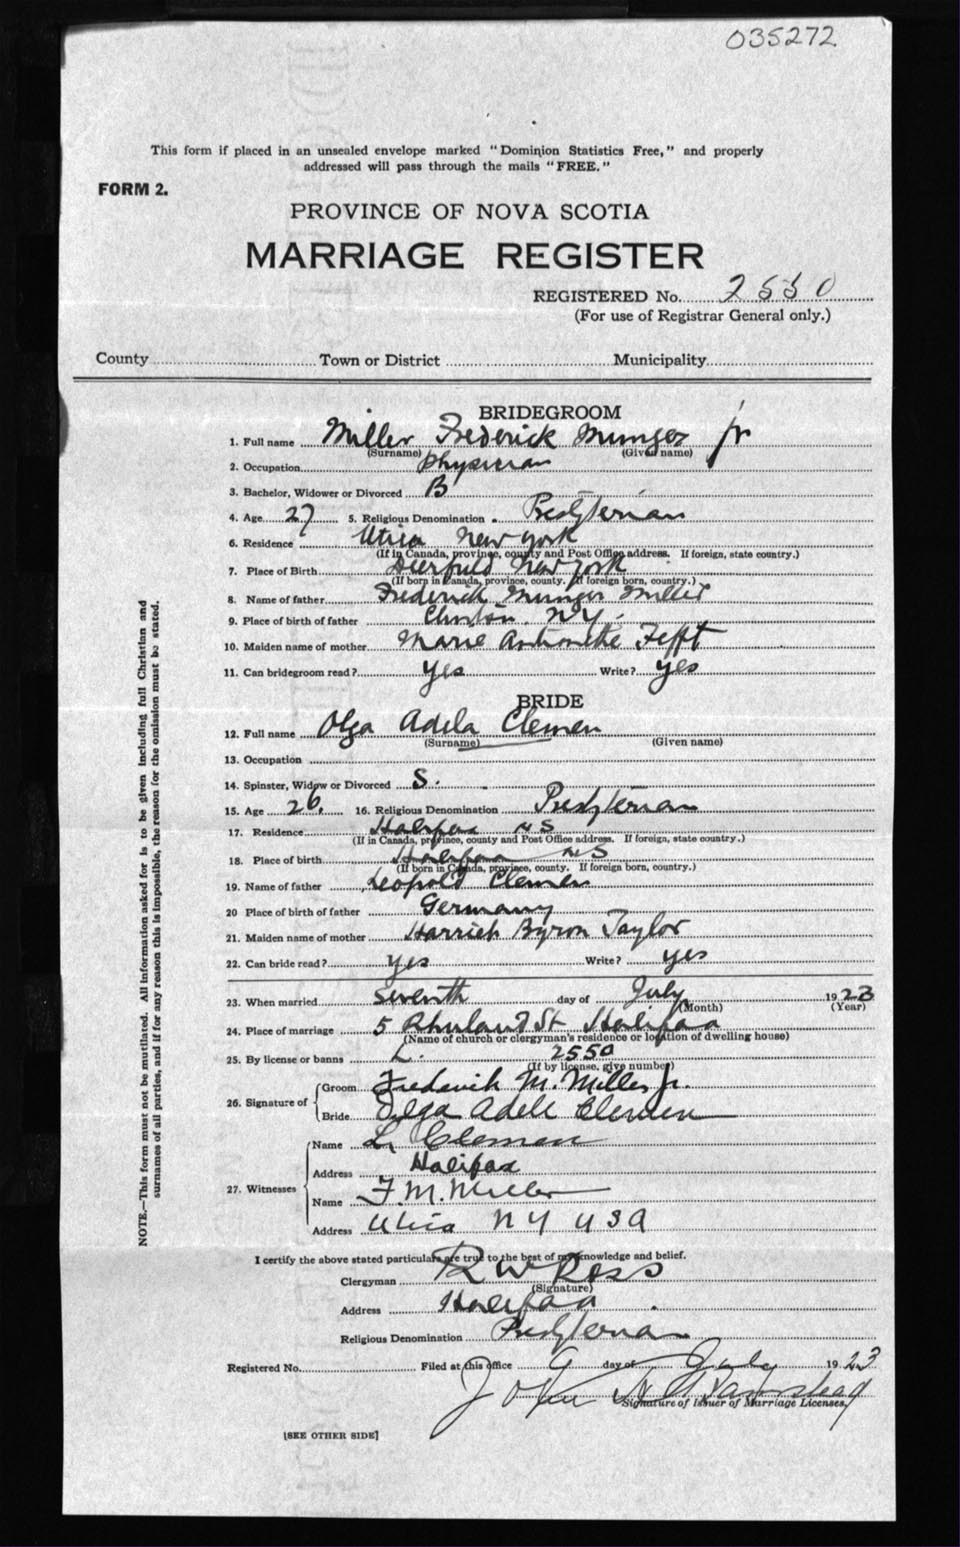 035272
This form if placed in an unsealed envelope marked "Dominion Statistics Free," and properly
addressed will pass through the mails "FREE."
FORM 2.
PROVINCE OF NOVA SCOTIA
MARRIAGE REGISTER
REGISTERED No. 2550
(For use of Registrar General only.)
County Town or District Municipality
BRIDEGROOM
1. Full name Miller Frederick Munger jr
(Surname) (Given name)
2. Occupation Physician
3. Bachelor, Widower or Divorced B
4. Age 27 5. Religious Denomination Presbyterian
6. Residence Utica New York
(If in Canada, province, county and Post Office address. If foreign, state country.)
7. Place of Birth Deerfield New York
(If born in Canada, province, county. If foreign born, country.)
8. Name of father Frederick Munger Miller
9. Place of birth of father Clinton N.Y.
10. Maiden name of mother Marie Antoinette Tefft
11. Can bridegroom read? yes Write? yes
BRIDE
12. Full name Olga Adela Clemen
(Surname) (Given name)
13. Occupation
14. Spinster, Widow or Divorced S.
15. Age 26. 16. Religious Denomination Presbyterian
17. Residence Halifax N S
(If in Canada, province, county and Post Office address. If foreign, state country.)
18. Place of birth Halifax N S
(If born in Canada, province, county. If foreign born, country.)
19. Name of father Leopold Clemen
20 Place of birth of father Germany
21. Maiden name of mother Harriet Byron Taylor
22. Can bride read? yes Write? yes
23. When married seventh day of July 1923
(Month) (Year)
24. Place of marriage 5 Rhuland St Halifax
(Name of church or clergyman's residence or location of dwelling house)
25. By license or banns L. 2550
(If by license, give number)
26. Signature of Groom Frederick M. Miller Jr.
Bride Olga Adele Clemen
27. Witnesses Name L. Clemen
Address Halifax
Name F. M. Miller
Address Utica N Y U S A
I certify the above stated particulars are true to the best of my knowledge and belief.
Clergyman R W Ross
(Signature)
Address Halifax
Religious Denomination Presbyterian
Registered No. Filed at this office 9 day of July 1923
John
Signature of Issuer of Marriage Licenses.
[SEE OTHER SIDE]
NOTE.—This form must not be mutilated. All information asked for is to be given including full Christian and
surnames of all parties, and if for any reason this is impossible, the reason for the omission must be stated.